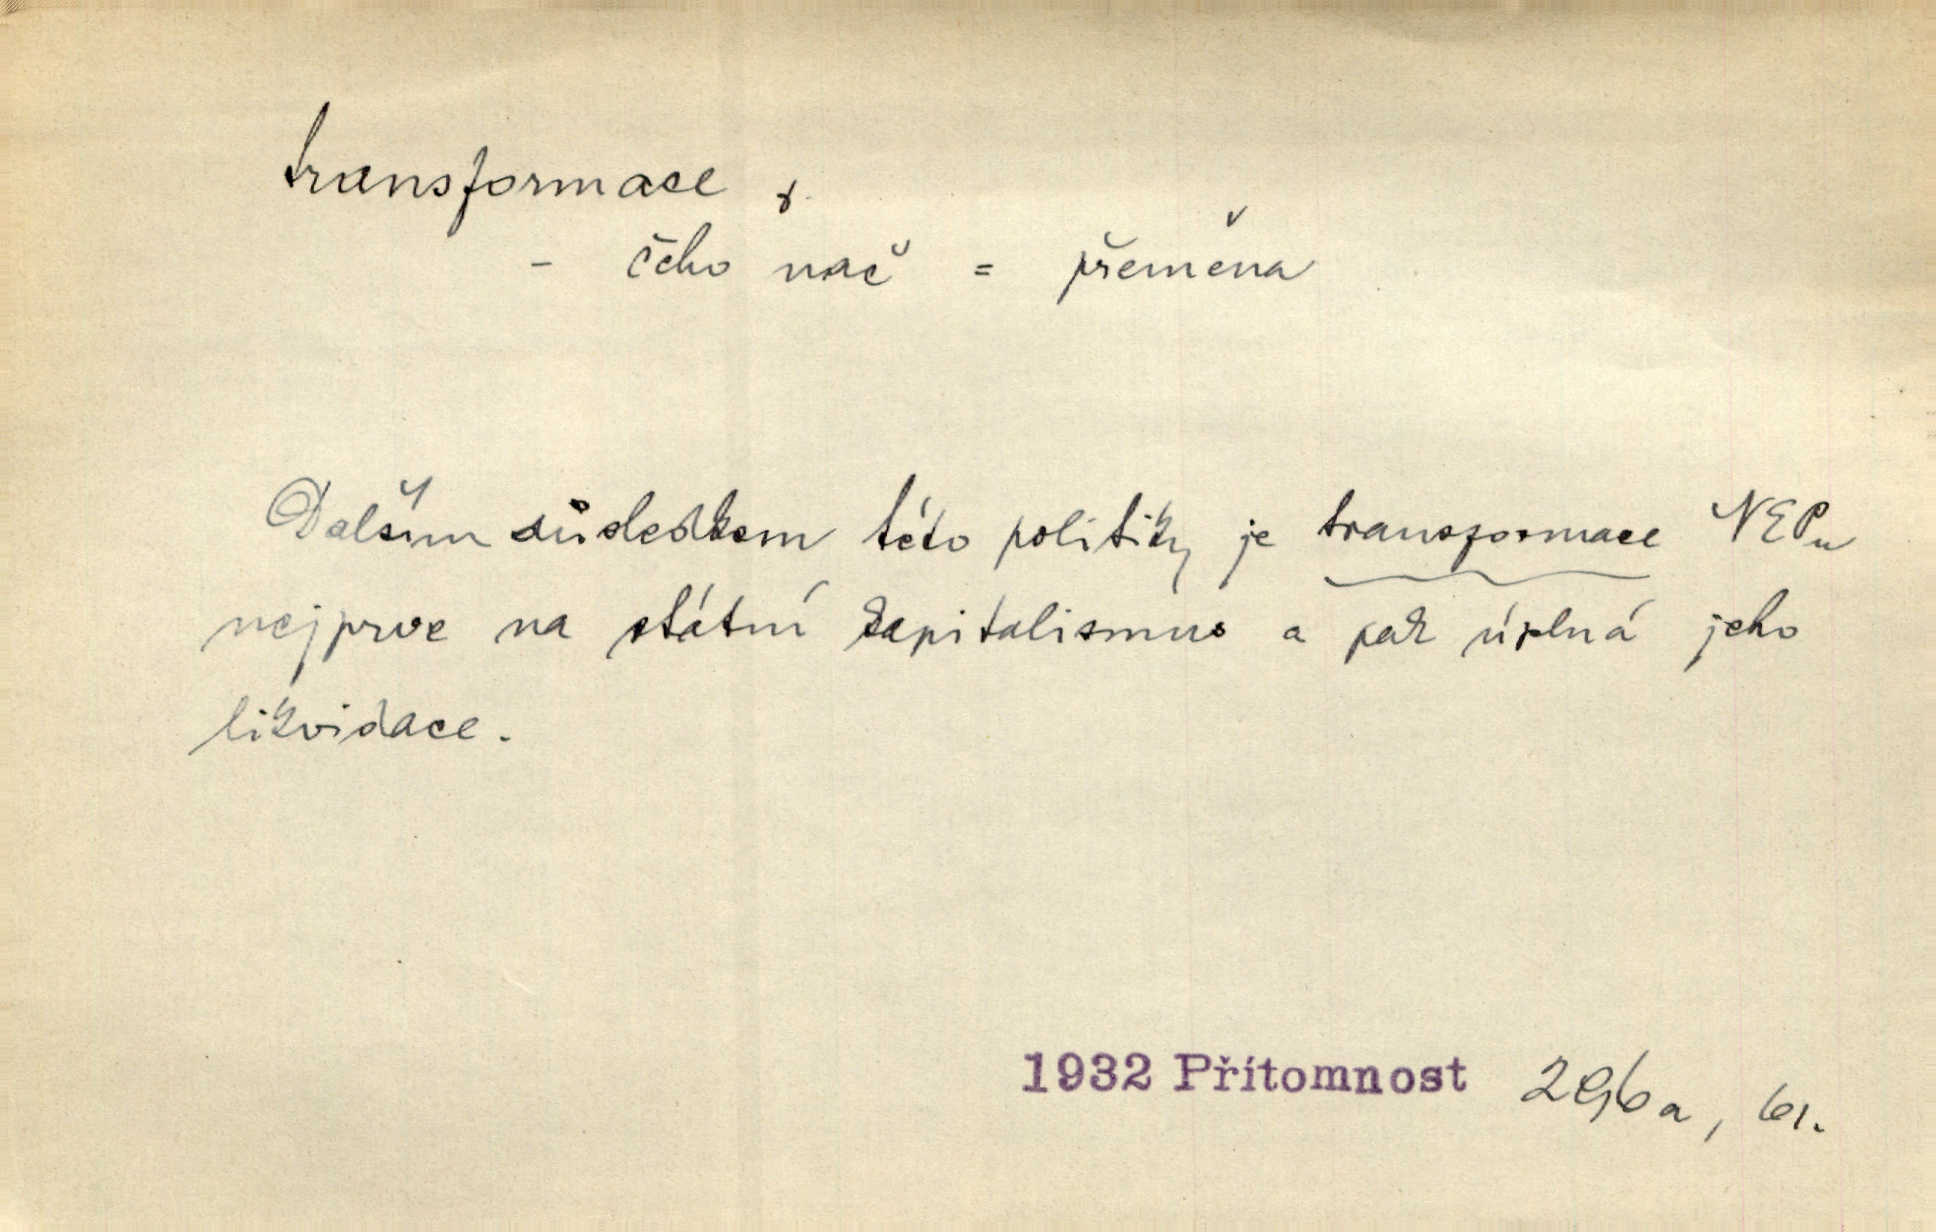 transformace, ž.
- čeho nač = přeměna
Dalším důsledkem této politiky je transformace NEPu
nejprve na státní kapitalismus a pak úplná jeho
likvidace.
1932 Přítomnost 296a, 61.